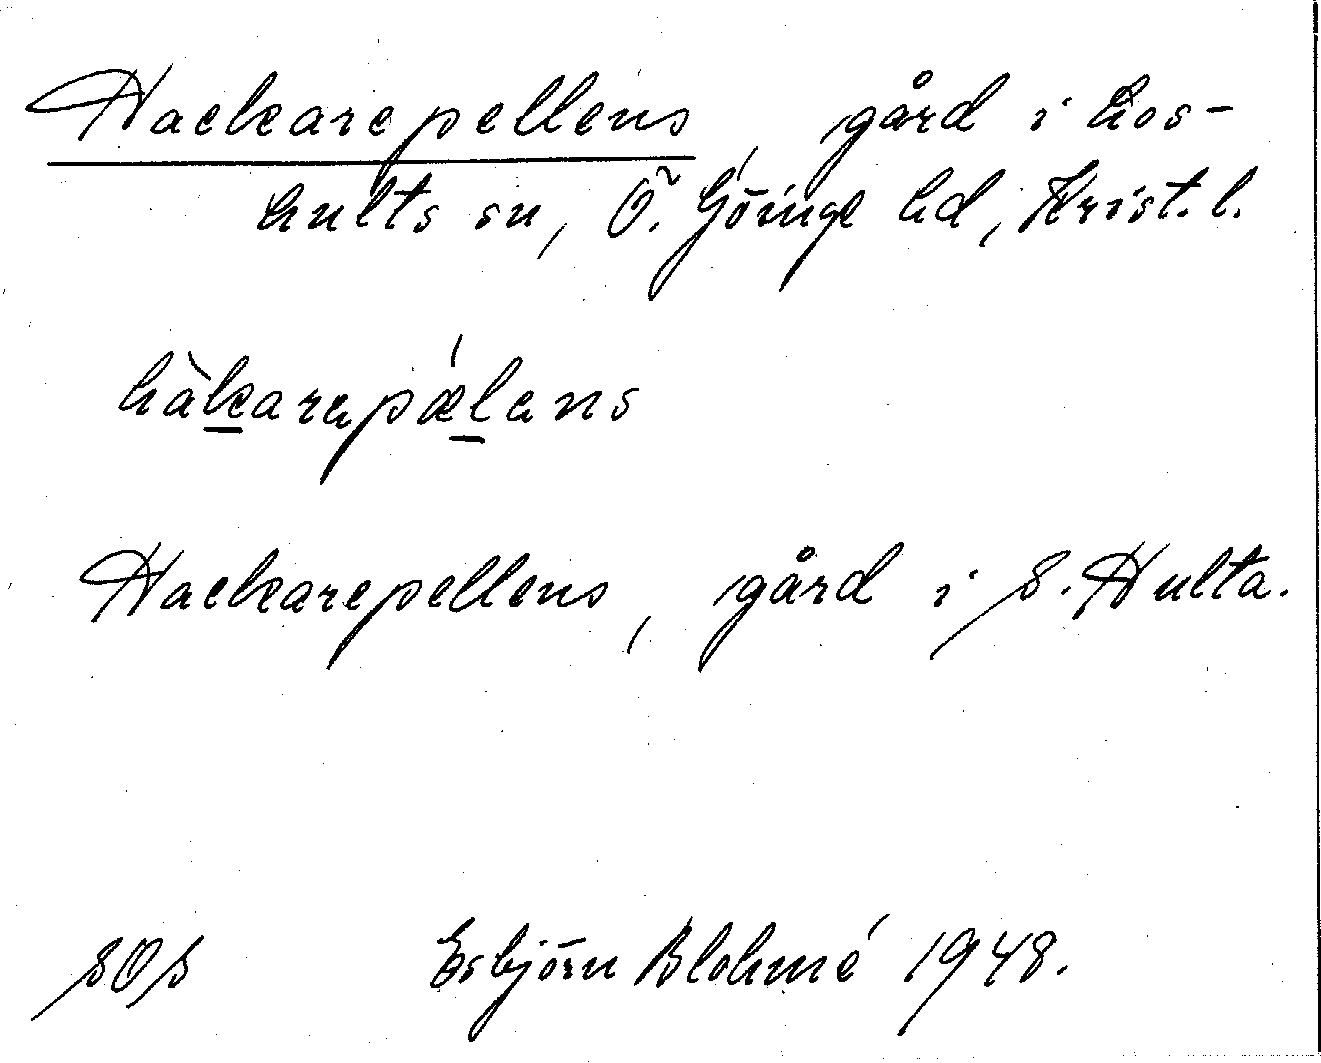 Hackarepellens, gård i Los-
hults sn, Ö. Göinge hd, Krist. l.
hàkarapǽlans
Hackarepellens, gård i S. Hulta.
SOS Esbjörn Blohmé 1948.